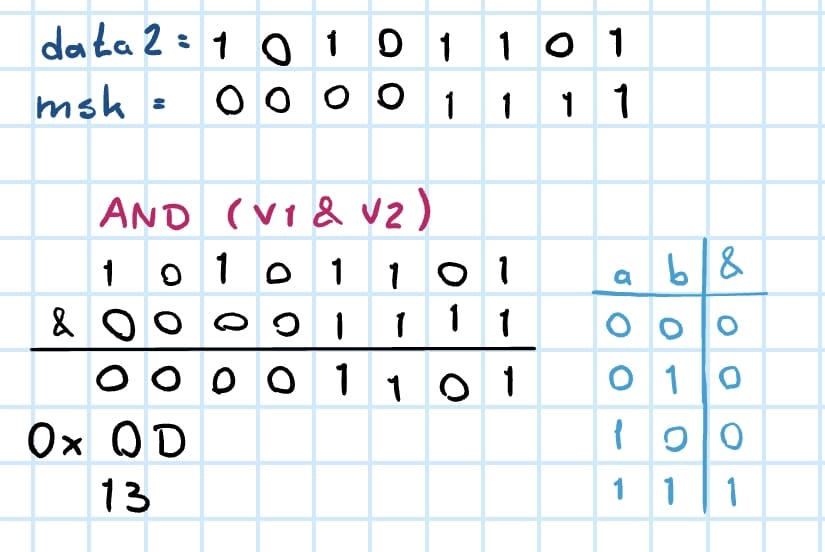 data2 = 1 0 1 0 1 1 0 1
msk = 0 0 0 0 1 1 1 1
AND (V1 & V2)
1 0 1 0 1 1 0 1
& 0 0 0 0 1 1 1 1
0 0 0 0 1 1 0 1
0x 0D
13
a b &
0 0 0
0 1 0
1 0 0
1 1 1